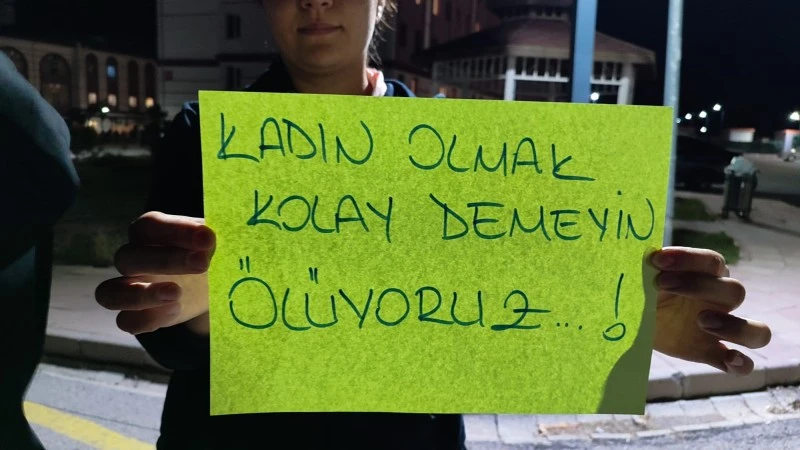 KADIN OLMAK
KOLAY DEMEYİN
ÖLÜYORUZ...!